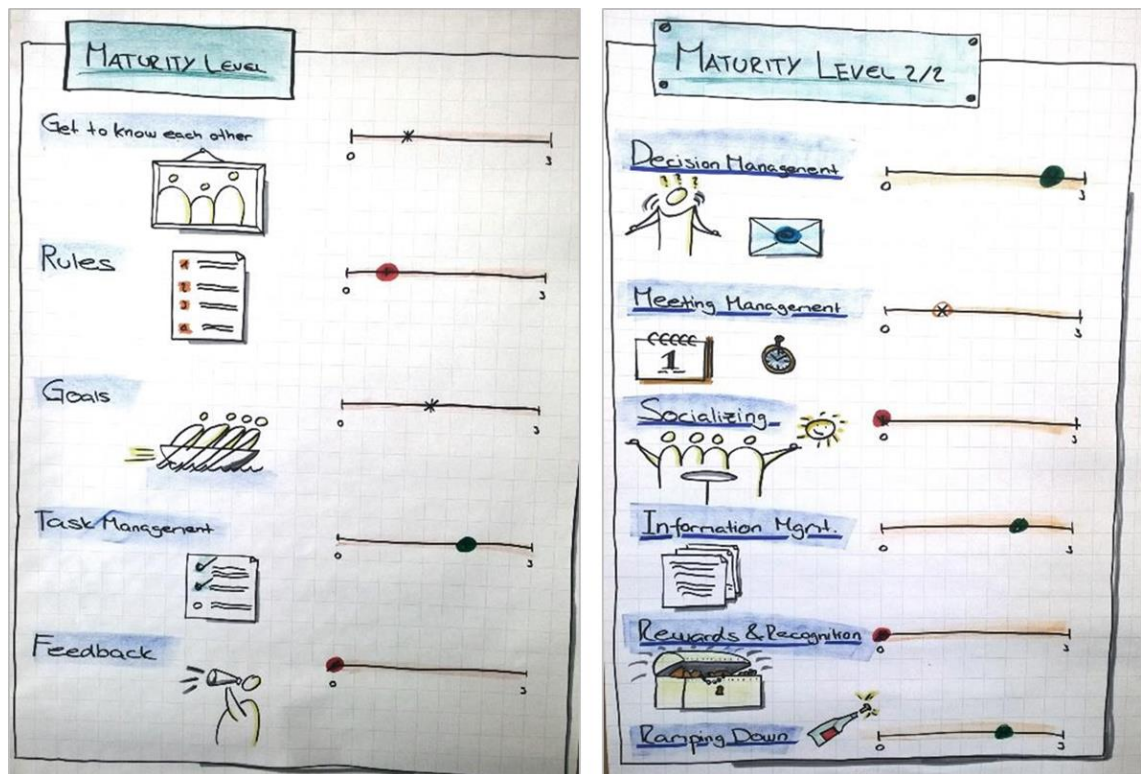 MATURITY LEVEL
Get to know each other
0 3
Rules
1
2
3
4
0 3
Goals
0 3
Task Management
0 3
Feedback
0 3
MATURITY LEVEL 2/2
Decision Management
! ! ?
0 3
Meeting Management
1
0 3
Socializing
0 3
Information Mgmt.
0 3
Rewards & Recognition
0 3
Ramping Down
0 3